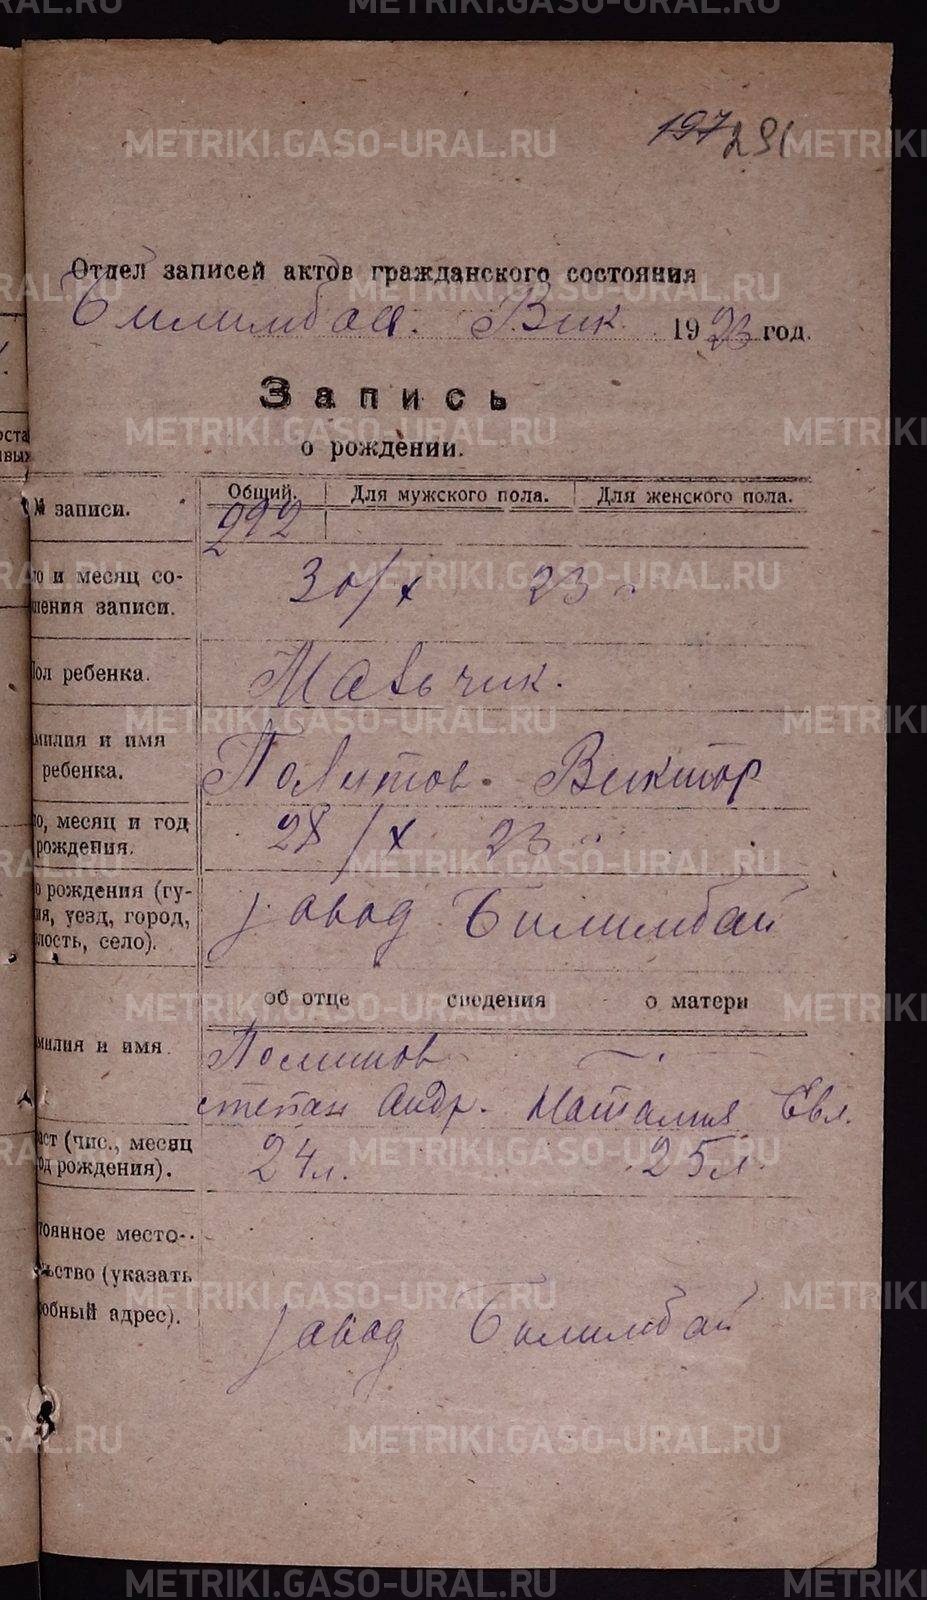 METRIKI.GASO-URAL.RU
197 291
Отдел записей актов гражданского состояния
Билимбаев. Вик. 1923 год.
Запись
о рождении.
№ записи.
Общий. Для мужского пола. Для женского пола.
292
ло и месяц со-
шения записи.
30/X 23 г
Пол ребенка.
Мальчик.
милия и имя
ребенка.
Политов. Виктор
ло, месяц и год
рождения.
28/X 23 г.
о рождения (гу-
ия, уезд, город,
лость, село).
завод Билимбай
об отце сведения о матери
милия и имя
Политов
степан Андр. Наталия Евл.
аст (чис., месяц
од рождения).
24л. 25л.
тоянное место-
ьство (указать
обный адрес).
завод Билимбай